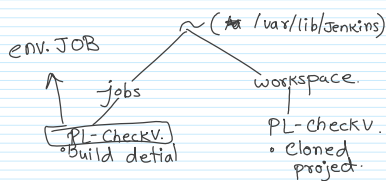 ~ (/var/lib/Jenkins)
env.JOB
jobs
workspace.
PL-CheckV.
• Build detial
PL-CheckV.
• Cloned
project.